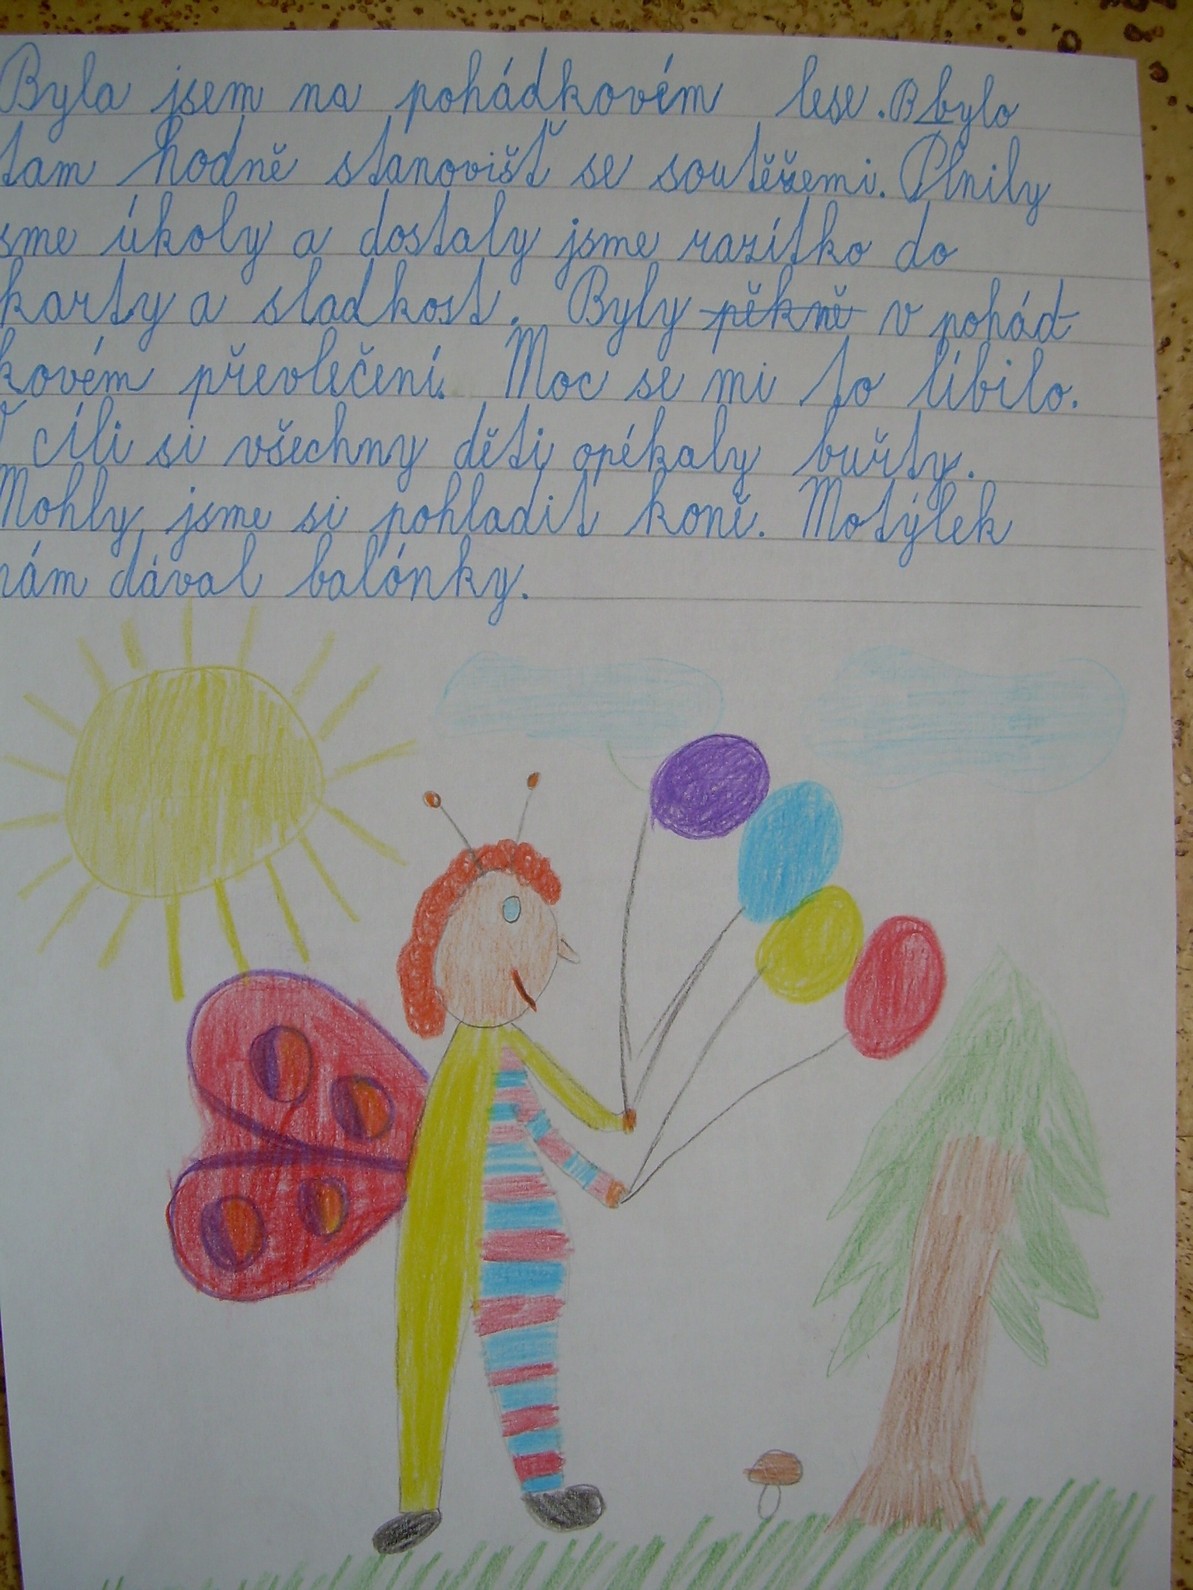 Byla jsem na pohádkovém lese. Bbylo
tam hodně stanovišť se soutěžemi. Plnily
sme úkoly a dostaly jsme razítko do
karty a sladkost. Byly pěkně v pohád
kovém převlečení. Moc se mi to líbilo.
V cíli si všechny děti opékaly buřty.
Mohly jsme si pohladit koně. Motýlek
nám dával balónky.